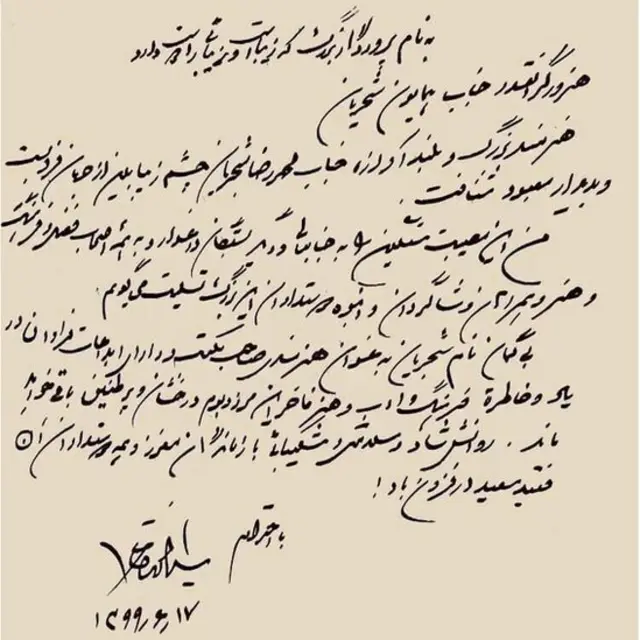 به نام پروردگار بزرگ که زیباست و زیبائی را دوست دارد
هنرور گرانقدر جناب همایون شجریان
هنرمند بزرگ و بلندآوازه، جناب محمدرضا شجریان چشم زیبابین از جهان فروبست
و بدیدار معبود شتافت.
من این مصیبت سنگین را به جنابعالی و دیگر بستگان داغدار و به همه اصحاب فضل و فرهنگ
و هنر و همراهان و شاگردان و انبوه دوستداران این بزرگ تسلیت می‌گویم.
بی‌گمان نام شجریان به عنوان هنرمندی صاحب سبک و دارای ابداعات فراوان در
یاد و خاطرهٔ فرهنگ و ادب و هنر فاخر این مرز و بوم درخشان و پرطنین باقی خواهد
ماند. روانش شاد و سلامتی و شکیبائی بازماندگان معزز و همه دوستداران آن
فقید سعید در فزون باد!
با احترام
۱۳۹۹٫۶٫۱۷